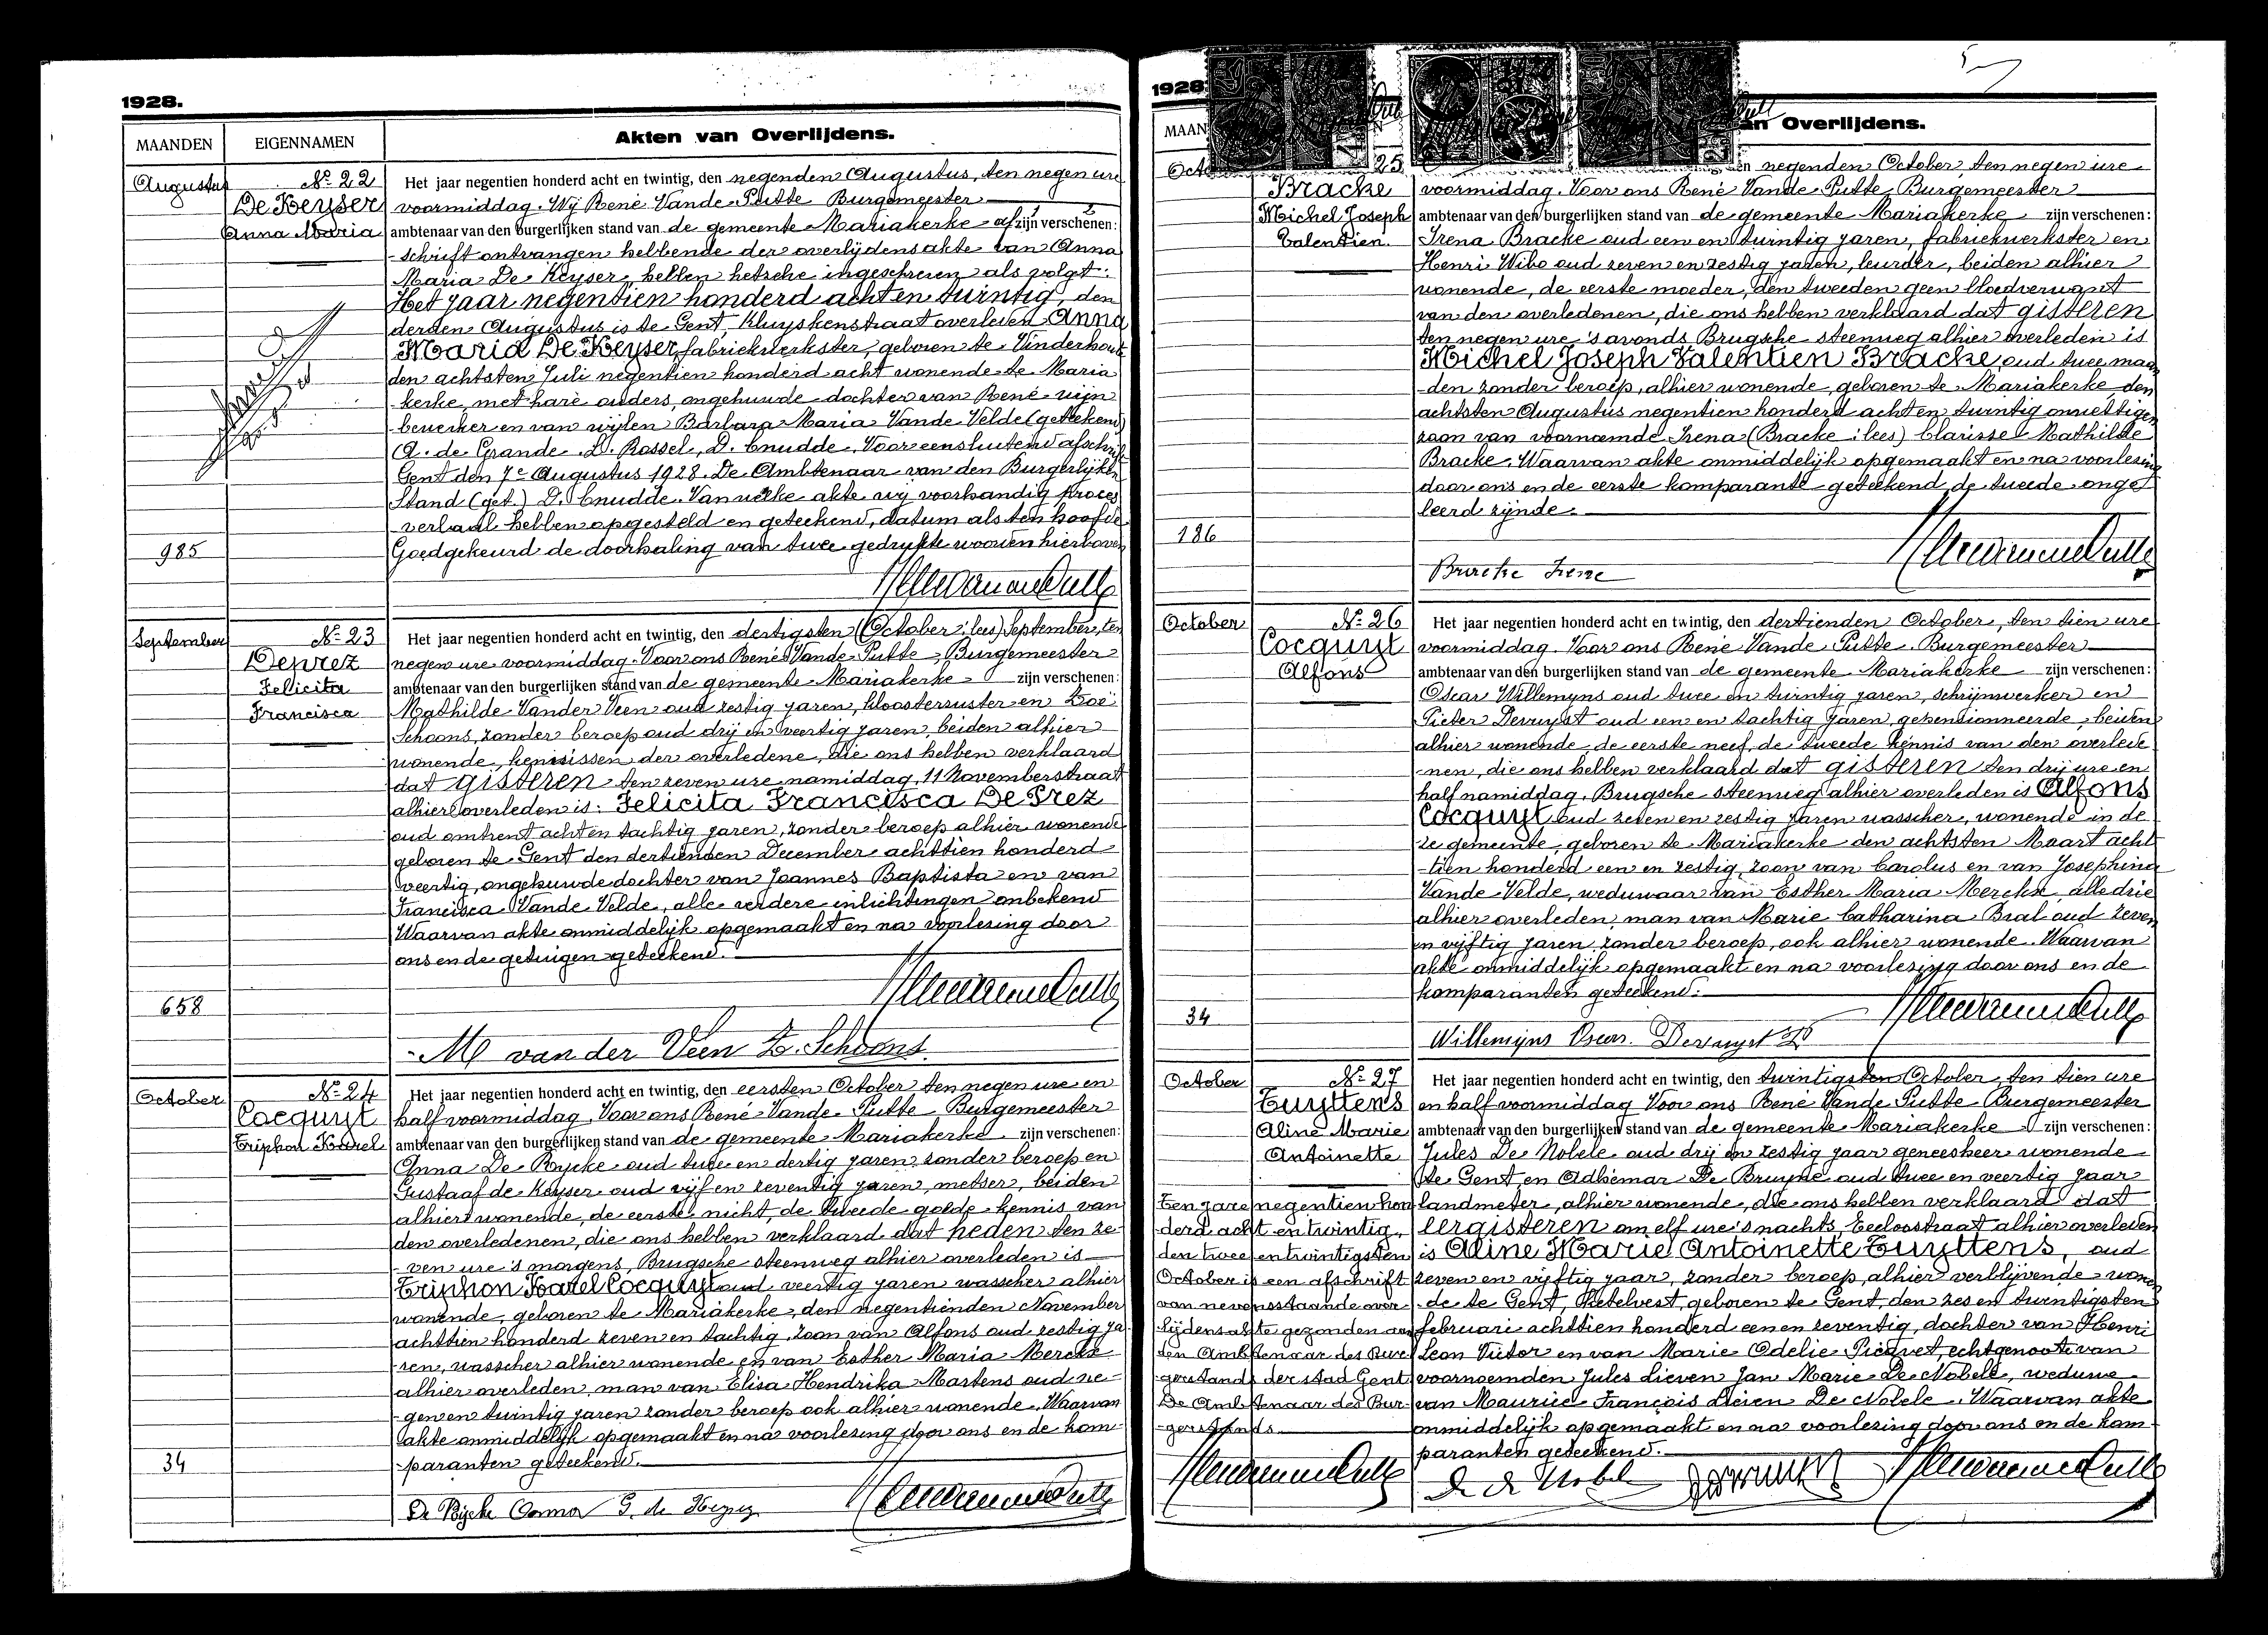 1928.
MAANDEN EIGENNAMEN Akten van Overlijdens.
Augustus
Nº 22
De Keyser
Anna Maria
Het jaar negentien honderd acht en twintig, den negenden Augustus, ten negen ure
voormiddag. Wij René Vande Putte Burgemeester
ambtenaar van den burgerlijken stand van de gemeente Mariakerke af zijn verschenen:
-schrift ontvangen hebbende der overlijdensakte van Anna
Maria De Keyser, hebben hetzelve ingeschreven als volgt:
Het jaar negentien honderd acht en twintig, den
derden Augustus is te Gent, Kluyskenstraat overleden Anna
Maria De Keyser fabriekwerkster, geboren te Vinderhoute
den achtsten Juli negentien honderd acht wonende te Maria
-kerke, met hare ouders, ongehuwde dochter van René mijn
bewerker en van wijlen Barbara Maria Vande Velde (geteekend)
A. de Grande. D. Rossel, D. Cnudde. Voor eensluitend afschrift
Gent den 7e Augustus 1928. De Ambtenaar van den Burgerlijken
Stand (get.) D. Cnudde. Van welke akte wij voorhandig proces
-verbaal hebben opgesteld en geteekend, datum als ten hoofde
Goedgekeurd de doorhaling van twee gedrukte woorden hierboven
985
September
Nº 23
Deprez
Felicita
Francisca
Het jaar negentien honderd acht en twintig, den dertigsten (October: lees) September, ten
negen ure voormiddag. Voor ons René Vande Putte, Burgemeester
ambtenaar van den burgerlijken stand van de gemeente Mariakerke zijn verschenen:
Mathilde Vander Veen oud zestig jaren, kloosterzuster en Zoë
Schoons, zonder beroep oud drij en veertig jaren, beiden alhier
wonende, kennissen der overledene, die ons hebben verklaard
dat gisteren ten zeven ure namiddag, 11 Novemberstraat
alhier overleden is: Felicita Francisca De Prez
oud omtrent acht en tachtig jaren, zonder beroep alhier wonende
geboren te Gent den dertienden December achttien honderd
veertig, ongehuwde dochter van Joannes Baptista en van
Francisca Vande Velde, alle verdere inlichtingen onbekend
Waarvan akte onmiddelijk opgemaakt en na voorlezing door
ons en de getuigen geteekend.
658
M van der Veen Z. Schoons
October
Nº 24
Cocquyt
Triphon Karel
Het jaar negentien honderd acht en twintig, den eersten October ten negen ure en
half voormiddag. Voor ons René Vande Putte Burgemeester
ambtenaar van den burgerlijken stand van de gemeente Mariakerke zijn verschenen:
Anna De Rycke oud twee en dertig jaren zonder beroep en
Gustaaf de Keyser oud vijf en zeventig jaren, metser, beiden
alhier wonende, de eerste nicht, de tweede goede kennis van
den overledenen, die ons hebben verklaard dat heden ten ze-
-ven ure 's morgens, Brugsche steenweg alhier overleden is
Triphon Karel Cocquyt oud veertig jaren wasscher alhier
wonende, geboren te Mariakerke, den negentienden November
achttien honderd zeven en tachtig, zoon van Alfons oud zestig ja-
-ren, wasscher alhier wonende en van Esther Maria Merckx
alhier overleden, man van Elisa Hendrika Martens oud ne-
-gen en twintig jaren zonder beroep ook alhier wonende. Waarvan
akte onmiddelijk opgemaakt en na voorlezing door ons en de kom-
-paranten geteekend.
34
De Rycke Anna G. de Keyzer
1928
MAAN an Overlijdens.
Octo
25
Bracke
Michel Joseph
Valentien
en negenden October, ten negen ure
voormiddag. Voor ons René Vande Putte Burgemeester
ambtenaar van den burgerlijken stand van de gemeente Mariakerke zijn verschenen:
Irena Bracke oud een en twintig jaren, fabriekwerkster en
Henri Wibo oud zeven en zestig jaren, leurder, beiden alhier
wonende, de eerste moeder, den tweeden geen bloedverwant
van den overledenen, die ons hebben verklaard dat gisteren
ten negen ure 's avonds Brugsche steenweg alhier overleden is
Michel Joseph Valentien Bracke, oud twee maan
-den zonder beroep, alhier wonende, geboren te Mariakerke den
achtsten Augustus negentien honderd acht en twintig onwettigen
zoon van voornoemde Irena (Bracke: lees) Clarisse Mathilde
Bracke. Waarvan akte onmiddelijk opgemaakt en na voorlezing
door ons en de eerste komparante geteekend de tweede onge-
leerd zijnde.
186
Bracke Irene
October
Nº 26
Cocquyt
Alfons
Het jaar negentien honderd acht en twintig, den dertienden October, ten tien ure
voormiddag. Voor ons René Vande Putte Burgemeester
ambtenaar van den burgerlijken stand van de gemeente Mariakerke zijn verschenen:
Oscar Willemyns oud twee en twintig jaren, schrijnwerker en
Pieter Devuyst oud een en tachtig jaren, gepensionneerde, beiden
alhier wonende, de eerste neef, de tweede kennis van den overlede
-nen, die ons hebben verklaard dat gisteren ten drij ure en
half namiddag, Brugsche steenweg alhier overleden is Alfons
Cocquyt oud zeven en zestig jaren wasscher, wonende in de
ze gemeente, geboren te Mariakerke den achtsten Maart acht
-tien honderd een en zestig, zoon van Carolus en van Josephina
Vande Velde, weduwaar van Esther Maria Merckx, alle drie
alhier overleden, man van Marie Catharina Bral oud zeven
en vijftig jaren zonder beroep, ook alhier wonende. Waarvan
akte onmiddelijk opgemaakt en na voorlezing door ons en de
komparanten geteekend.
34
Willemyns Oscar. Devuyst
October
Nº 27
Tuyttens
Aline Marie
Antoinette
Het jaar negentien honderd acht en twintig, den twintigsten October, ten tien ure
en half voormiddag Voor ons René Vande Putte Burgemeester
ambtenaar van den burgerlijken stand van de gemeente Mariakerke zijn verschenen:
Jules De Nobele oud drij en zestig jaar geneesheer wonende
te Gent, en Adhemar De Bruyne oud twee en veertig jaar
landmeter, alhier wonende, die ons hebben verklaard dat
eergisteren om elf ure 's nachts, Eeloostraat alhier overleden
is Aline Marie Antoinette Tuyttens, oud
zeven en vijftig jaar, zonder beroep, alhier verblijvende wonen
-de te Gent, Ketelvest, geboren te Gent, den zes en twintigsten
februari achttien honderd een en zeventig, dochter van Henri
Leon Victor en van Marie Odelie Picavet, echtgenoote van
voornoemden Jules Lieven Jan Marie De Nobele, weduwe
van Maurice François Lieien De Nobele. Waarvan akte
onmiddelijk opgemaakt en na voorlezing door ons en de kom-
paranten geteekend.
Ten jare negentien hon
derd acht en twintig,
den twee en twintigsten
October is een afschrift
van nevensstaande over-
lijdensakte gezonden aan
den Ambtenaar des Bur-
gerstands der stad Gent
De Ambtenaar des Bur-
-gerstands